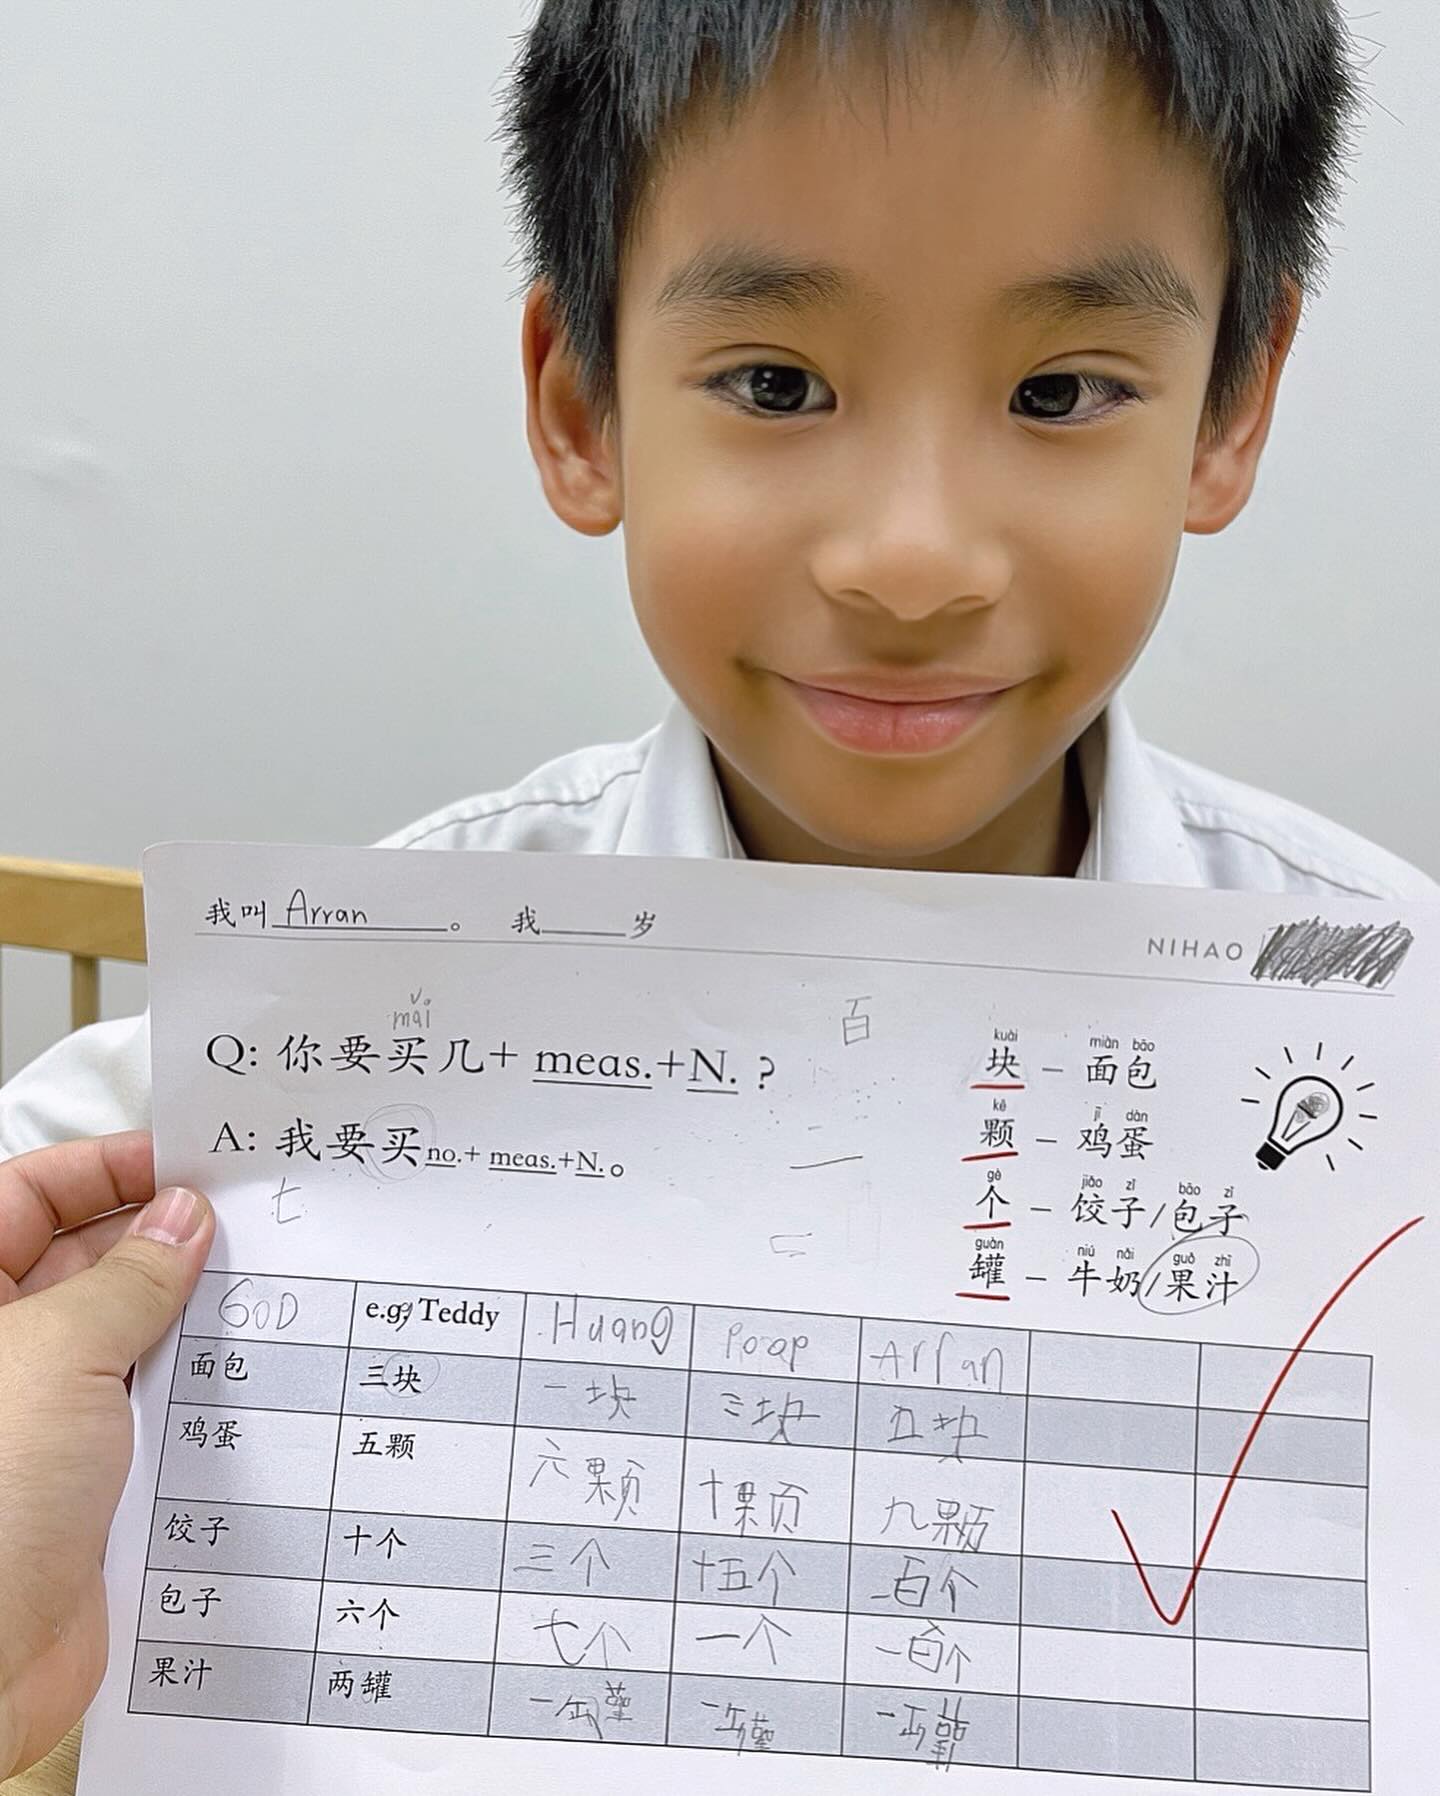 我叫 Arran 。 我 岁
NIHAO
mǎi
Q: 你要买几+ meas.+N. ?
A: 我要买 no.+ meas.+N.。
百
七
kuài miàn bāo
块 – 面包
kē jī dàn
颗 – 鸡蛋
gè jiǎo zǐ bāo zǐ
个 – 饺子/包子
guàn niú nǎi guǒ zhī
罐 – 牛奶/果汁
GOD e.g, Teddy Huang Poop Arran
面包 三块 一块 三块 五块
鸡蛋 五颗 六颗 十颗 九颗
饺子 十个 三个 十五个 一百个
包子 六个 七个 一个 一百个
果汁 两罐 一罐 一罐 一罐